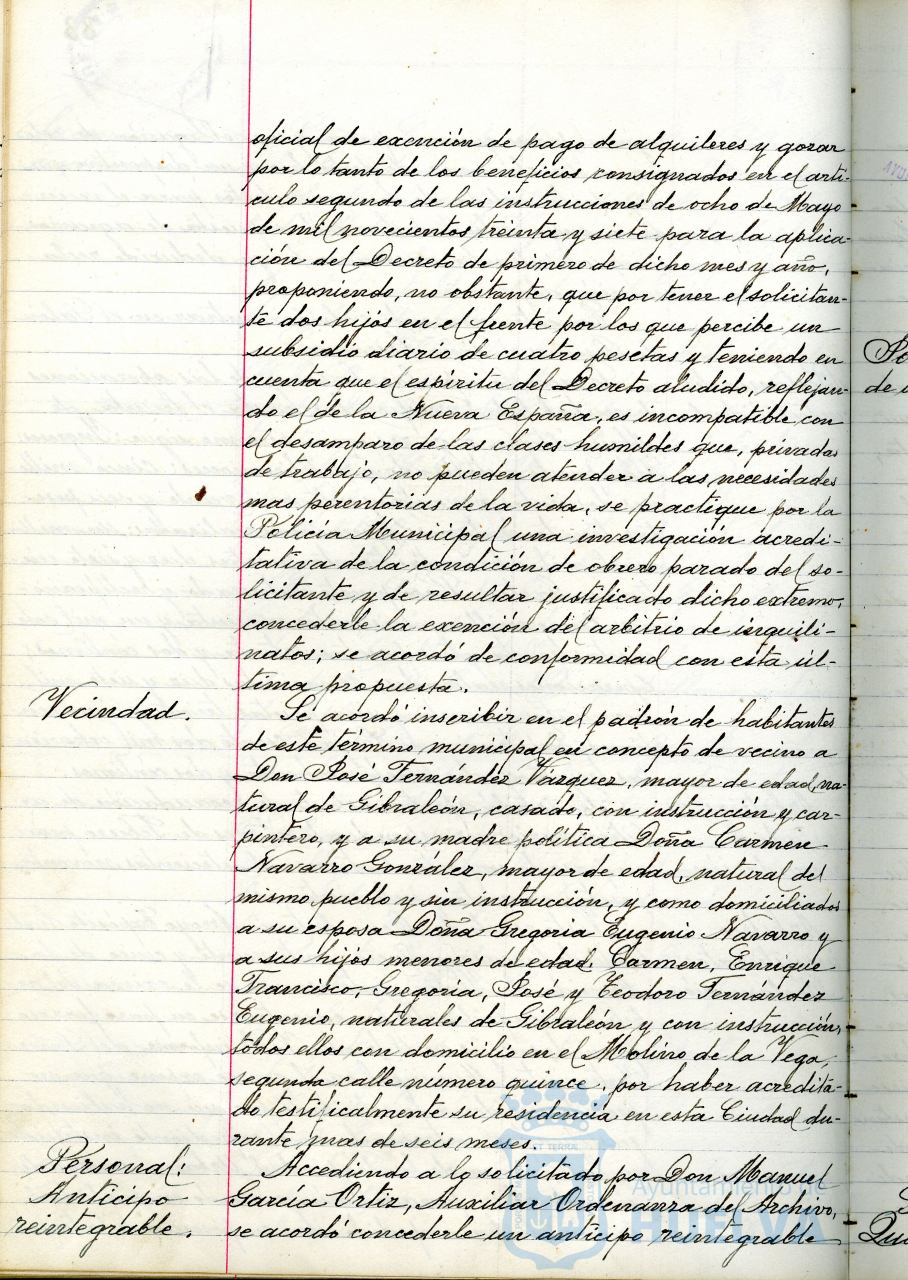 oficial de exención de pago de alquileres y gozar
por lo tanto de los beneficios consignados en el artí-
culo segundo de las instrucciones de ocho de Mayo
de mil novecientos treinta y siete para la aplica-
ción del Decreto de primero de dicho mes y año,
proponiendo, no obstante, que por tener el solicitan-
te dos hijos en el frente por los que percibe un
subsidio diario de cuatro pesetas y teniendo en
cuenta que el espíritu del Decreto aludido, reflejan-
do el de la Nueva España, es incompatible con
el desamparo de las clases humildes que, privadas
de trabajo, no pueden atender a las necesidades
mas perentorias de la vida, se practique por la
Policía Municipal una investigación acredi-
tativa de la condición de obrero parado del so-
licitante y de resultar justificado dicho extremo,
concederle la exención del arbitrio de inquili-
natos; se acordó de conformidad con esta úl-
tima propuesta.
Vecindad.
Se acordó inscribir en el padrón de habitantes
de este término municipal en concepto de vecino a
Don José Fernández Vázquez, mayor de edad, na-
tural de Gibraleón, casado, con instrucción y car-
pintero, y a su madre política Doña Carmen
Navarro González, mayor de edad, natural del
mismo pueblo y sin instrucción, y como domiciliados
a su esposa Doña Gregoria Eugenio Navarro y
a sus hijos menores de edad. Carmen, Enrique
Francisco, Gregoria, José y Teodoro Fernández
Eugenio, naturales de Gibraleón y con instrucción,
todos ellos con domicilio en el Molino de la Vega,
segunda calle número quince, por haber acredita-
do testificalmente su residencia en esta Ciudad du-
rante mas de seis meses.
Personal:
Anticipo
reintegrable.
Accediendo a lo solicitado por Don Manuel
García Ortiz, Auxiliar Ordenanza del Archivo,
se acordó concederle un anticipo reintegrable
Ayuntamiento
HUELVA